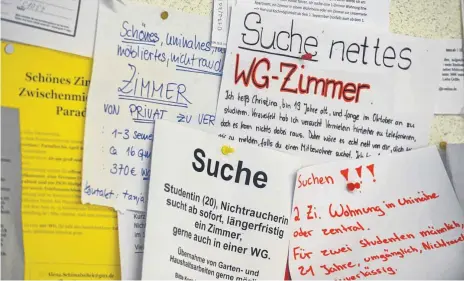 Schönes Zi
Zwischenmie
Parad
Schönes, uninahes,
möbliertes, nichtraud
ZIMMER
von PRIVAT zu VER
1-3 Seme
ca 16 qm
370€ W
Kontakt: tanja
Suche nettes
WG-Zimmer.
Ich heiße Christina, bin 19 Jahre alt, und fange im Oktober an zu
studieren. Verzweifelt hab ich versucht Vermietern hinterher zu telefonieren,
doch es kam nichts dabei raus. Daher wäre es echt nett von dir, dich bei
mir zu melden, falls du einen Mitbewohner suchst.
Suche
Studentin (20), Nichtraucherin
sucht ab sofort, längerfristig
ein Zimmer,
gerne auch in einer WG.
Übernahme von Garten- und
Haushaltsarbeiten gerne mögl
Suchen !!!
2 Zi. Wohnung in Uninähe
oder zentral.
Für zwei Studenten männlich,
21 Jahre, umgänglich, Nichtrauc
zuverlässig.